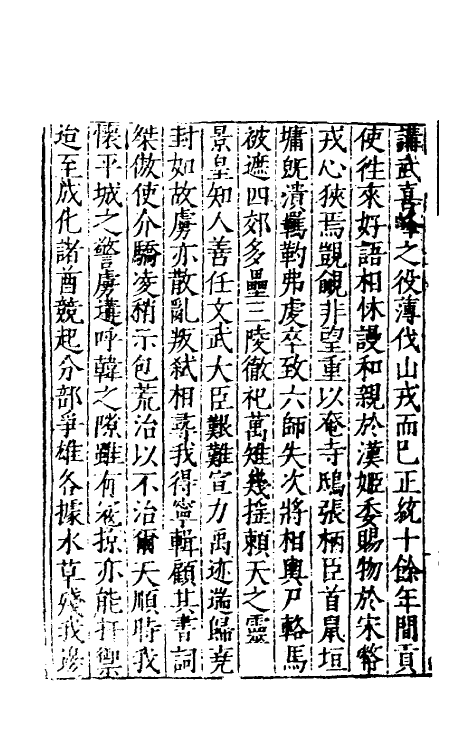 講武喜峰之役薄伐山戎而已正統十餘年間貢
使往來好語相休謾和親於漢姬委賜物於宋幣
戎心狹焉覬覦非望重以奄寺鴟張柄臣首鼠垣
墉既潰羈靮弗虔卒致六師失次將相輿尸輅馬
被遮四郊多壘三陵徹祀萬雉幾搖賴天之靈
景皇知人善任文武大臣艱難宣力禹迹端歸堯
封如故虜亦散亂叛弒相尋我得寧輯顧其書詞
桀傲使介驕凌稍示包荒治以不治爾天順時我
懷平城之警虜遺呼韓之隙雖有寇掠亦能扞禦
迨至成化諸酋競起分部爭雄各據水草殘我邊